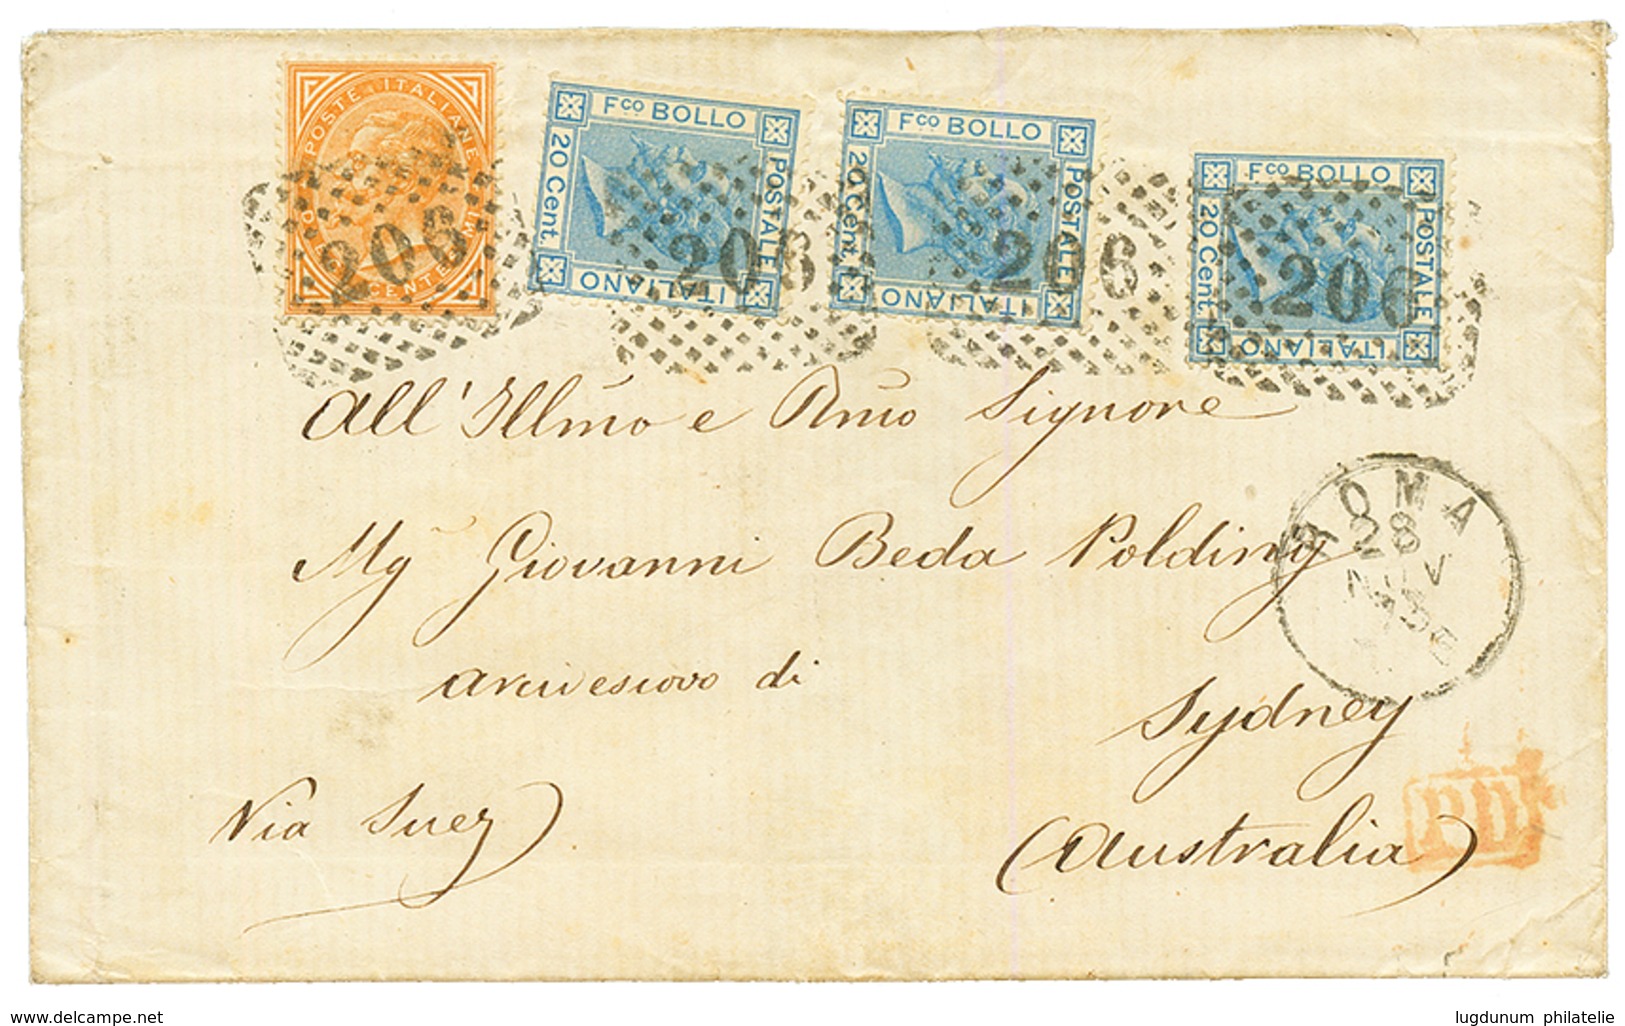 POSTE ITALIANE
DIECI CENTESIMI
208
Fco BOLLO
20 Cent.
POSTALE
ITALIANO
208
Fco BOLLO
20 Cent.
POSTALE
ITALIANO
206
Fco BOLLO
20 Cent.
POSTALE
ITALIANO
206
all'Illmo e Rmo Signore
Mgr Giovanni Beda Polding
arcivescovo di
Sydney
Via Suez
(Australia)
ROMA
28
NOV
PD
www.delcampe.net
lugdunum philatelie